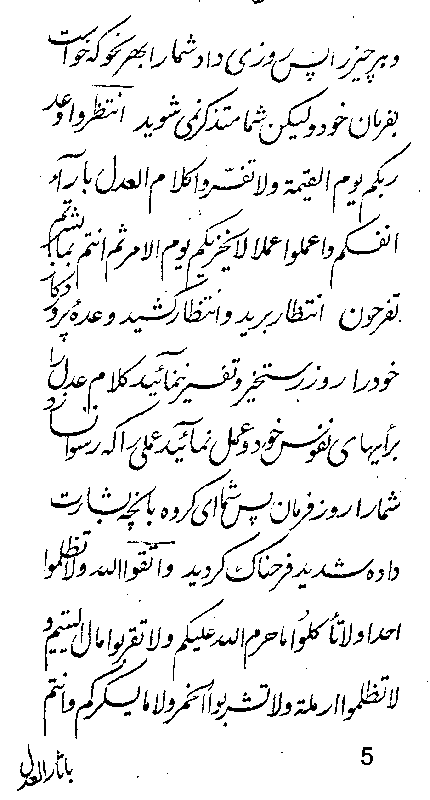 و هر چیز را پس روزی داد شما را بهر نحو که خواست
بفرمان خود و لیکن شما متذکر نمی شوید انتظروا وعد
ربکم یوم القیمة و لا تفسّروا کلام العدل بارآء
انفسکم و اعملوا عملا لا یخزیکم یوم الامر ثم انتم بما بشرتم
تفرحون انتظار برید و انتظار کشید وعدهٔ پروردگار
خود را روز رستخیز و تفسیر ننمائید کلام عدل را
برأیهای نفوس خود و عمل نمائید عملی را که رسوا نسازد
شما را روز فرمان پس شما ای گروه بآنچه بشارت
داده شدید فرحناک کردید و اتقوا الله و لا تظلموا
احدا و لا تأکلوا ما حرم الله علیکم و لا تقربوا مال الیتیم و
لا تظلموا ارملة و لا تشربوا الخمر و لا ما یسکرکم و انتم
بآثار العدل
5